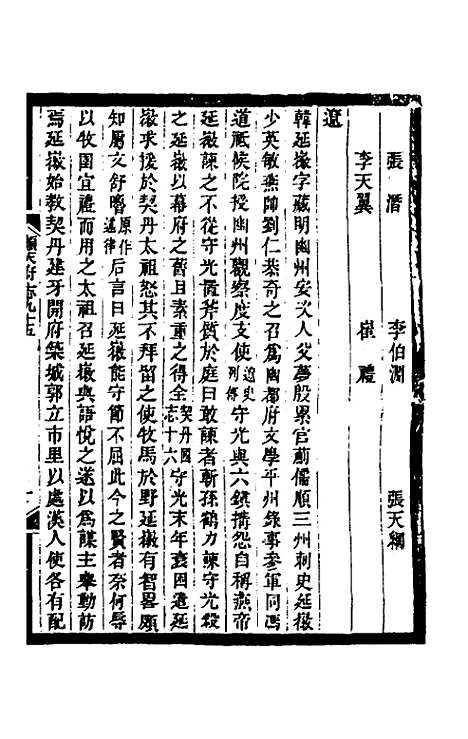 張潛 李伯淵 張天綱
李天翼 崔禮
遼
韓延徽字藏明幽州安次人父夢殷累官薊儒順三州刺史延徽
少英敏燕帥劉仁恭奇之召為幽都府文學平州錄事參軍同馮
道祗候院授幽州觀察度支使遼史列傳守光與六鎮搆怨自稱燕帝
延徽諫之不從守光置斧質於庭曰敢諫者斬孫鶴力諫守光殺
之延徽以幕府之舊且素重之得全契丹國志十六守光末年衰困遣延
徽求援於契丹太祖怒其不拜留之使牧馬於野延徽有智畧頗
知屬文舒嚕原作述律后言曰延徽能守節不屈此今之賢者奈何辱
以牧圉宜禮而用之太祖召延徽與語悅之遂以為謀主舉動訪
焉延徽始教契丹建牙開府築城郭立市里以處漢人使各有配
順天府志九十五